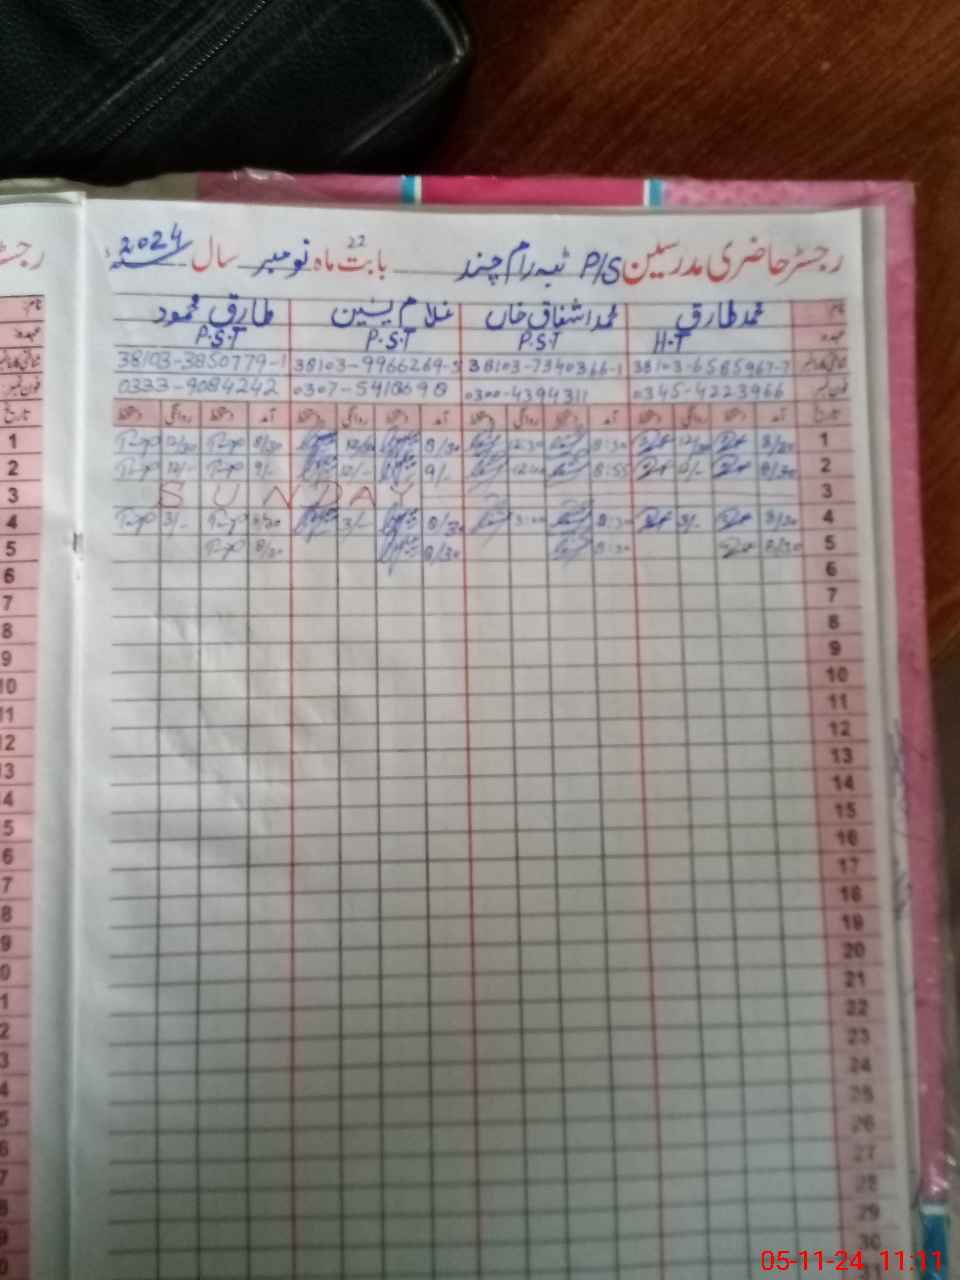 رجسٹر حاضری مدرسین P/S ٹبہ رام چند بابت ماہ 22 نومبر سال 2024
نام محمد طارق محمد اشفاق خاں غلام یٰسین طارق محمود
عہدہ H.T P.S.T P.S.T P.S.T
38103-6585967-7 38103-7340366-1 38103-9966269- 38103-3850779-1
فون نمبر 0345-4223966 0300-4394311 0307-5418698 0333-9084242
تاریخ آمد دستخط روانگی دستخط آمد دستخط روانگی دستخط آمد دستخط روانگی دستخط آمد دستخط روانگی دستخط
1 8/30 12/30 8:30 12:30 8/30 8/30 12/30 1
2 8:55 9/- 12/- 9/- 12/- 2
3 SUNDAY 3
4 8/30 3/- 8:30 3:00 8/30 3/- 8/30 3/- 4
5 8/30 8:30 8/30 8/30 5
6 6
7 7
8 8
9 9
10 10
11 11
12 12
13 13
14 14
15 15
16
17
18
19
20
21
22
23
24
25
26
27
28
29
30
05-11-24 11:11